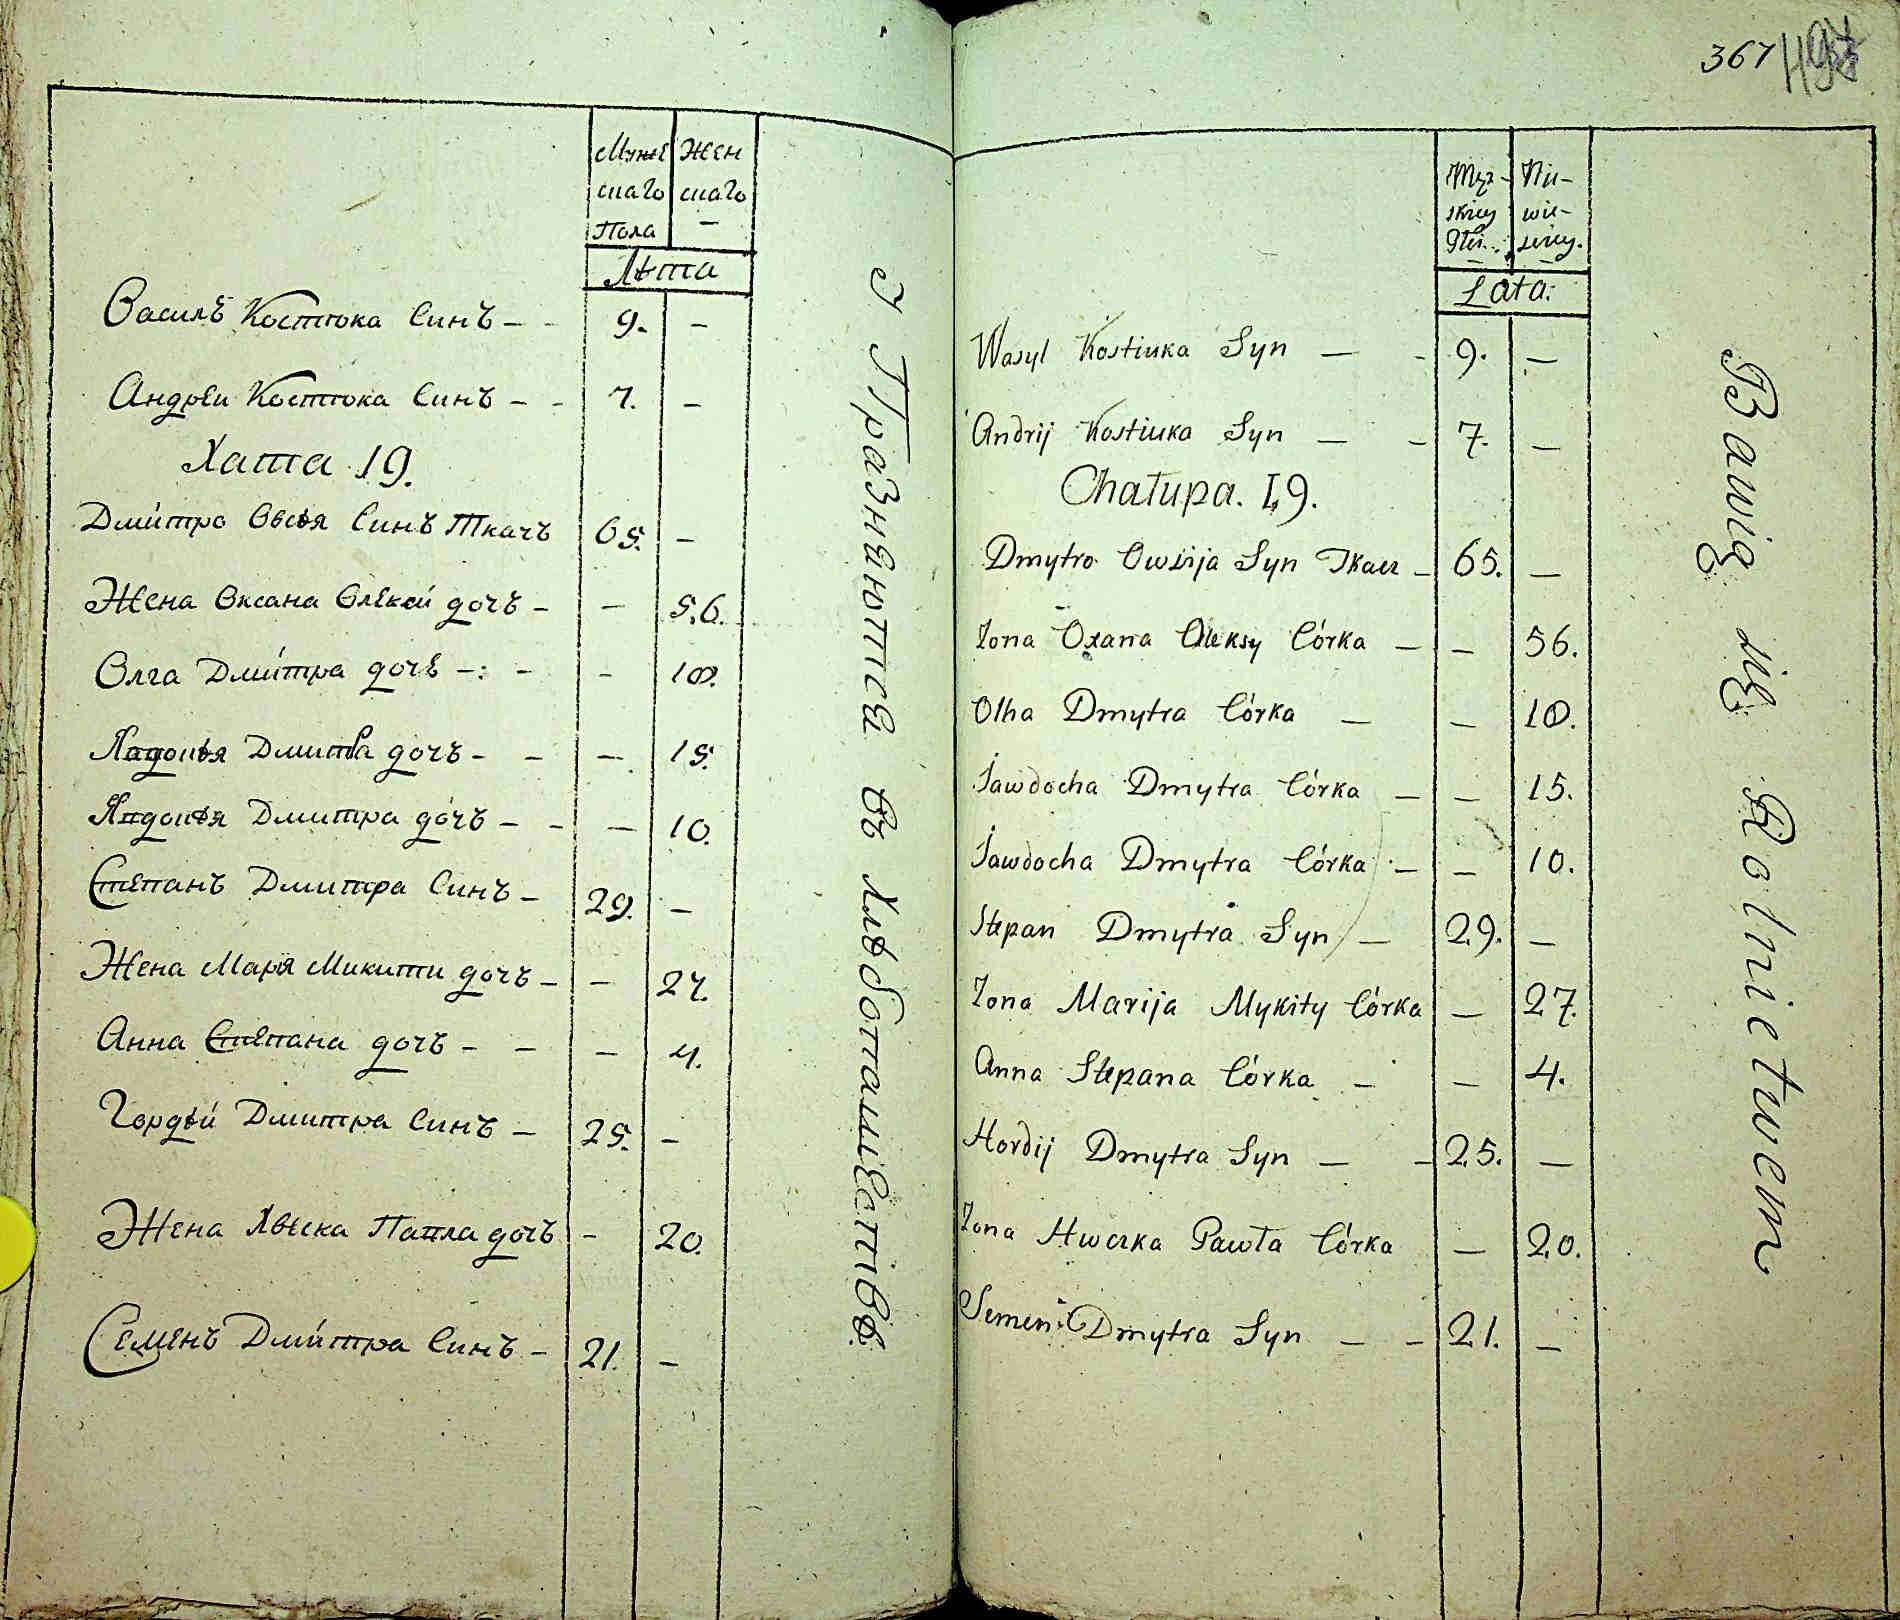 Муже
скаго
Пола
Жен
скаго
–
Лѣта
Василь Костюка Синъ – – 9. –
Андрей Костюка Синъ – – 7. –
Хата 19.
Дмитро Овсѣя Синъ Ткачъ 65. –
Жена Оксана Олексѝ дочъ – – 56.
Олга Дмитра дочь – : – – 18.
Явдоцѣя Дмитра дочъ – – – 15.
Явдоцѣя Дмитра дочъ – – – 10.
Степанъ Дмитра Синъ – 29. –
Жена Маря Микити дочъ – – 27.
Анна Степана дочъ – – – 4.
Гордѣй Дмитра Синъ – 25. –
Жена Хвеска Павла дочъ – 20.
Семенъ Дмитра Синъ – 21. –
Упражняются въ хлѣбопашестивѣ.
367
Męz-
skiey
Płci.
Nie-
wie-
sciey.
Lata:
Wasyl Kostiuka Syn – – 9. –
Andrij Kostiuka Syn – – 7. –
Chałupa. 19.
Dmytro Owsija Syn Tkacz – 65. –
Zona Oxana Oleksy Córka – – 56.
Olha Dmytra Córka – – 18.
Jawdocha Dmytra Córka – – 15.
Jawdocha Dmytra Córka – – 10.
Stepan Dmytra Syn – 29. –
Zona Marija Mykity Córka – 27.
Anna Stepana Córka – – 4.
Hordij Dmytra Syn – – 25. –
Zona Hweska Pawła Córka – 20.
Semen Dmytra Syn – – 21. –
Bawią się Rolnictwem